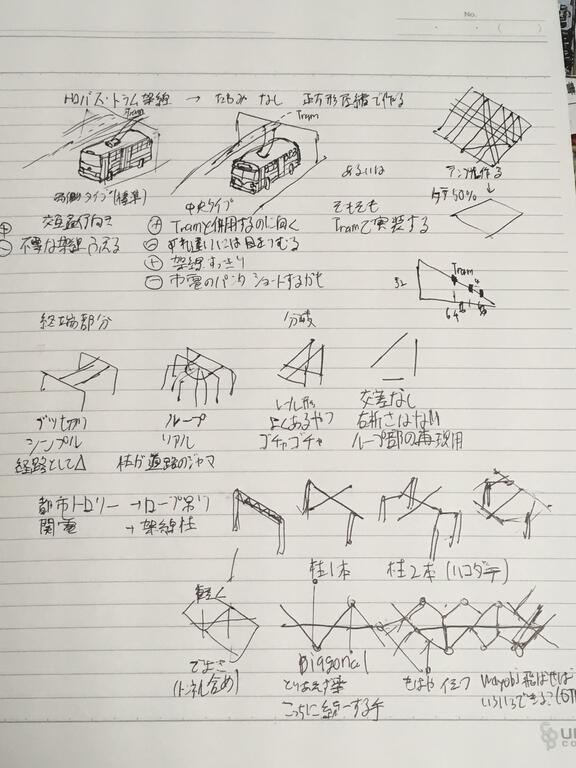 No.
トロバス・トラム架線 → たるみ なし 正方形圧縮で作る
Tram
Tram
両側タイプ(標準)
中央タイプ
あるいは
アングル作る
↓
⊕ 交互通行向き
⊖ 不要な架線ふえる
⊕ Tramと併用するのに向く
⊖ すれ違いには目をつむる
⊕ 架線すっきり
⊖ 市電のパンタショートするかも
そもそも
Tramで実装する
タテ50%
Tram
32
64
経端部分
分岐
ブツ切り
シンプル
経路として△
ループ
リアル
柱が道路のジャマ
レール形
よくあるやつ
ゴチャゴチャ
交差なし
右折
ループ部の再現用
都市トロリー → ロープ吊り
関電 → 架線柱
柱1本
柱2本(ハコダテ)
軽く
でよさ
(トンネル含め)
Diagonal
とりあえず
こっちに統一する手
もはや
いろいろできる?